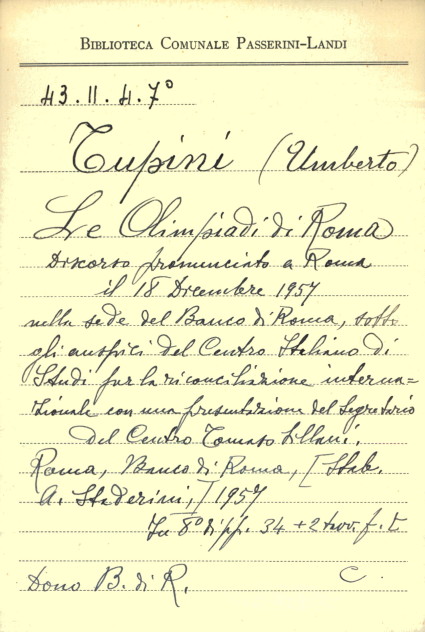 BIBLIOTECA COMUNALE PASSERINI-LANDI
43.II.4.7°
Tupini (Umberto)
Le Olimpiadi di Roma
Discorso pronunciato a Roma
il 18 Dicembre 1957
nella sede del Banco di Roma, sotto
gli auspici del Centro Italiano di
Studi per la riconciliazione interna=
zionale con una presentazione del Segretario
del Centro Tomaso Sillani.
Roma, Banco di Roma, [Stab.
A. Staderini,] 1957
In 8° di pp. 34 + 2 tavv. f. t.
Dono B. di R. C.